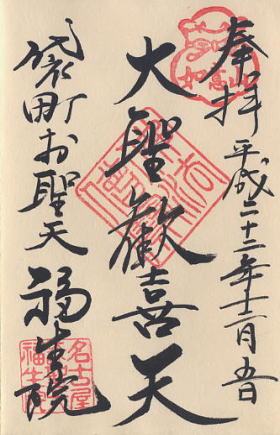 奉拝 平成二十二年十二月五日
大聖歓喜天
袋町お聖天 福生院
名古屋
福生院